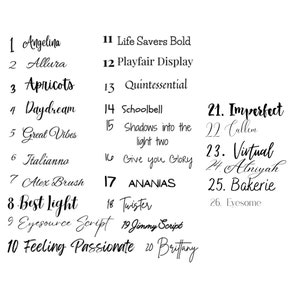 1 Angelina
2 Allura
3 Apricots
4 Daydream
5 Great Vibes
6 Italianno
7 Alex Brush
8 Best Light
9 Eyesource Script
10 Feeling Passionate
11 Life Savers Bold
12 Playfair Display
13 Quintessential
14 Schoolbell
15 Shadows into the
light two
16 Give you Glory
17 ANANIAS
18 Twister
19 Jimmy Script
20 Brittany
21. Imperfect
22
23. Virtual
24
25. Bakerie
26. Eyesome